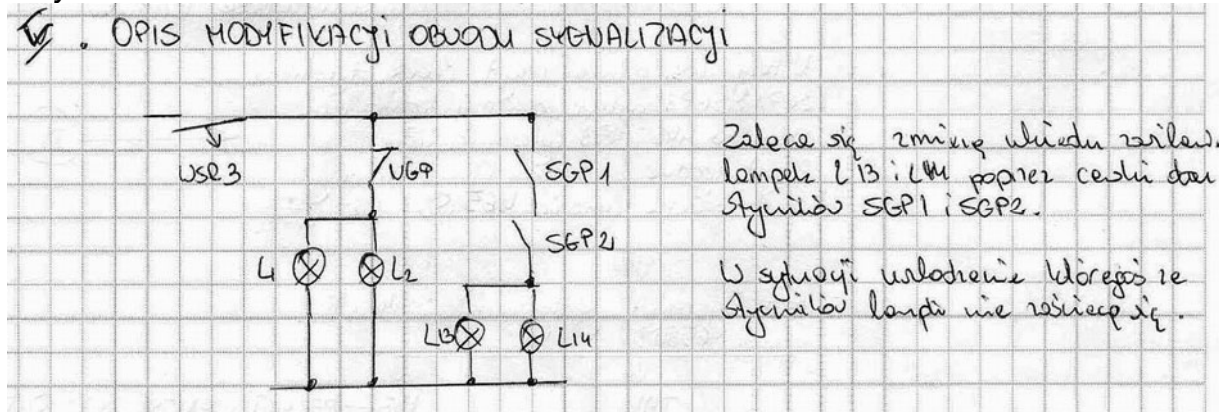 . OPIS MODYFIKACJI OBWODU SYGNALIZACJI
WSR3
UGP
SGP1
SGP2
L1
L2
L13
L14
Zaleca się zmianę układu zasilan.
lampek L13 i L14 poprzez cewki dwu
styczników SGP1 i SGP2.
W sytuacji uszkodzenia któregoś ze
styczników lampki nie zaświecą się.